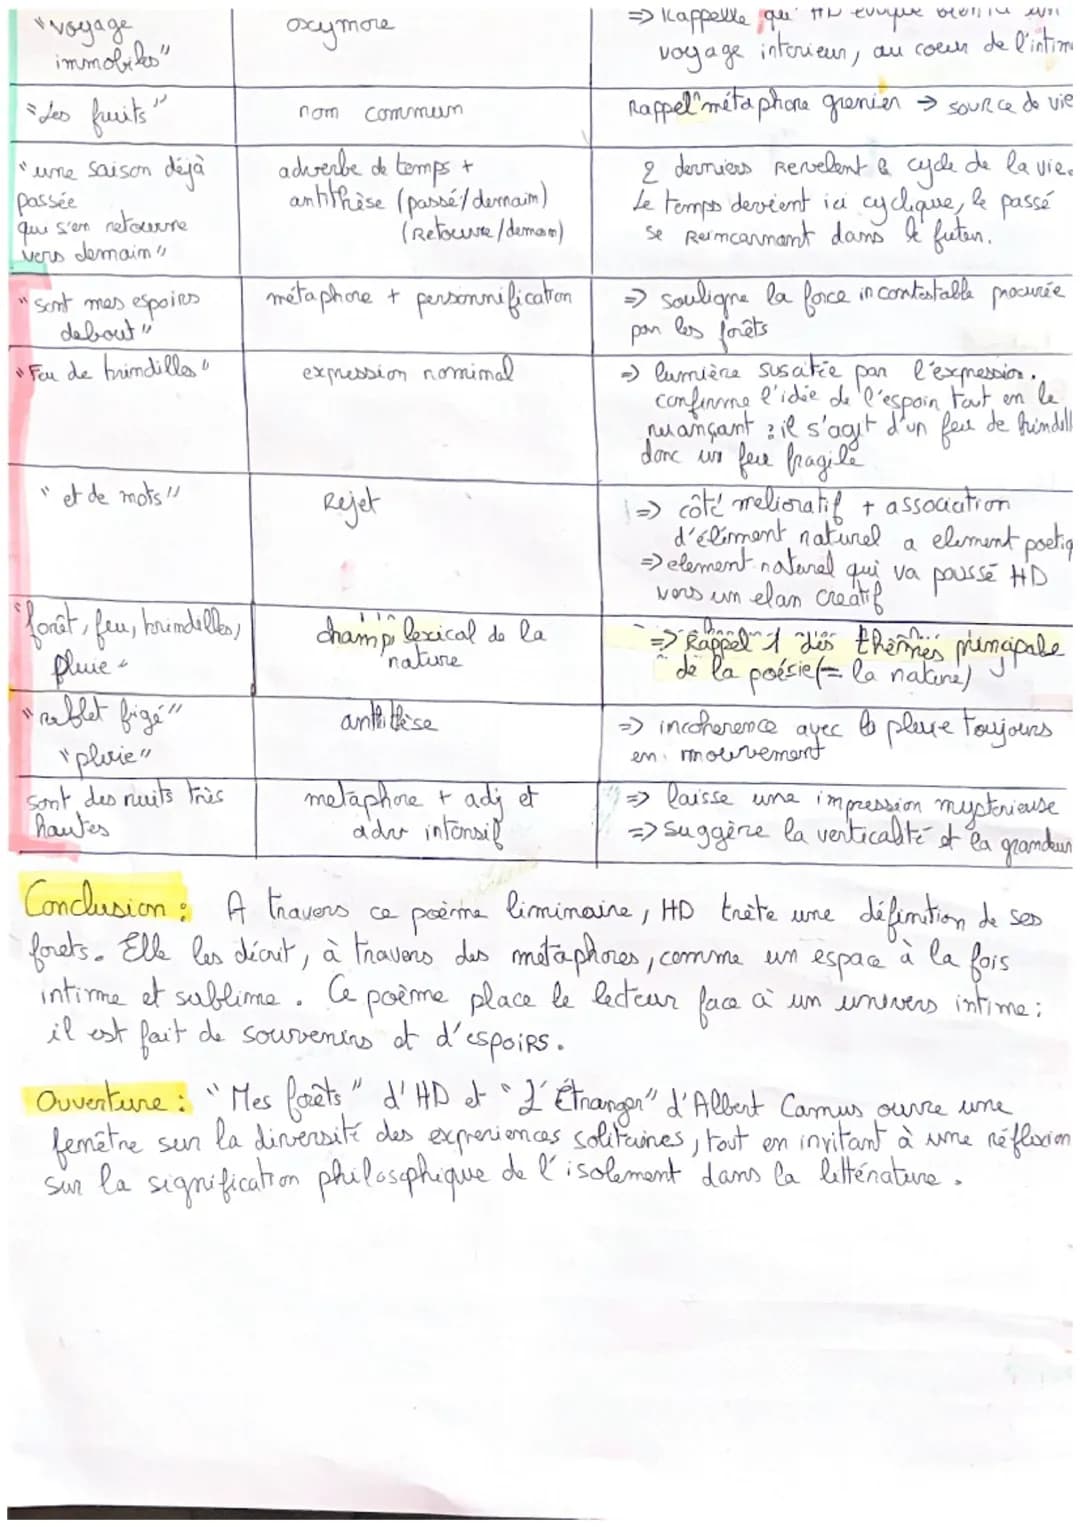 "voyage
immobiles"
oxymore
=> Rappelle que HD évoque
voyage interieur, au coeur de l'intim
"Les fruits"
nom commun
Rappel métaphore grenier → source de vie
"une saison déjà
passée
qui s'en retourne
vers demain"
adverbe de temps +
antithèse (passé/demain)
(Retourne/demain)
2 derniers Revelent le cycle de la vie.
Le temps devient ici cyclique, le passé
se Reincarnant dans le futur.
"sont mes espoirs
debout"
métaphore + personnification
=> souligne la force incontestable procurée
par les forêts
"Feu de brindilles"
expression nominal
=> lumière suscitée par l'expression.
confirme l'idée de l'espoir tout en le
nuançant : il s'agit d'un feu de brindill
donc un feu fragile
"et de mots"
Rejet
=> côté melioratif + association
d'élément naturel a element poetiq
=> element naturel qui va poussé HD
vers un elan creatif
"forêt, feu, brindilles,
pluie"
champ lexical de la
nature
=> Rappel 1 des thèmes principale
de la poésie (= la nature)
"reflet figé"
"pluie"
antithèse
=> incoherence avec la pluie toujours
en mouvement
sont des nuits très
hautes
metaphore + adj et
adv intensif
=> laisse une impression mysterieuse
=> Suggère la verticalité et la grandeur
Conclusion : A travers ce poème liminaire, HD traite une définition de ses
forets. Elle les décrit, à travers des métaphores, comme un espace à la fois
intime et sublime. Ce poème place le lecteur face à un univers intime :
il est fait de souvenirs et d'espoirs.
Ouverture : "Mes forêts" d'HD et "L'Étranger" d'Albert Camus ouvre une
fenêtre sur la diversité des experiences solitaires, tout en invitant à une réflexion
sur la signification philosophique de l'isolement dans la littérature.